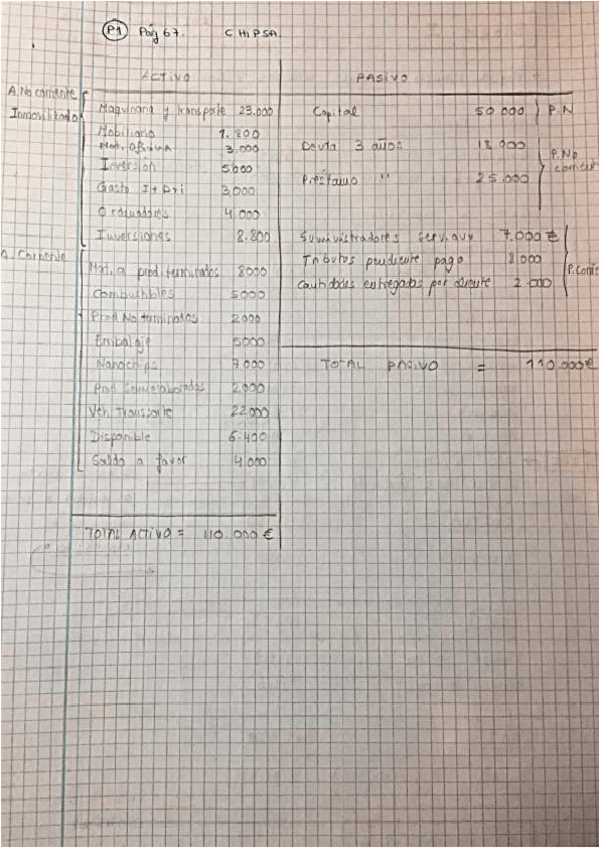 P1 Pág 67. CHIPSA.
ACTIVO PASIVO
A. No corriente
Inmovilizado
Maquinaria y transporte 23.000
Mobiliario 1.800
Mat. Oficina 3.000
Inversión 5000
Gasto I+D+i 3,000
Ordenadores 4.000
Inversiones 2.800
A. Corriente
Mat. a prod. terminados 8000
Combustibles 5000
Prod No terminados 2000
Embalaje 5000
Nanochips 7000
Prod Semielaborados 2.000
Veh. Transporte 22000
Disponible 6.400
Saldo a favor 4.000
TOTAL ACTIVO = 110.000 €
Capital 50 000 P.N
Deuda 3 años 18 000
Préstamo " 25.000
P. No corrient
Suministradores serv. 7.000 €
Tributos pendiente pago 8 000
Cantidades entregadas por cliente 2 000
P. Corrie
TOTAL PASIVO = 110.000€